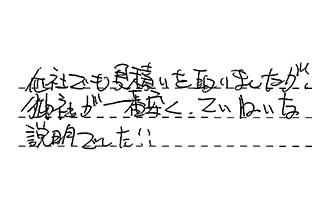 他社でも見積いを取りましたが、
御社が一番安く、ていねいな
説明でした!!